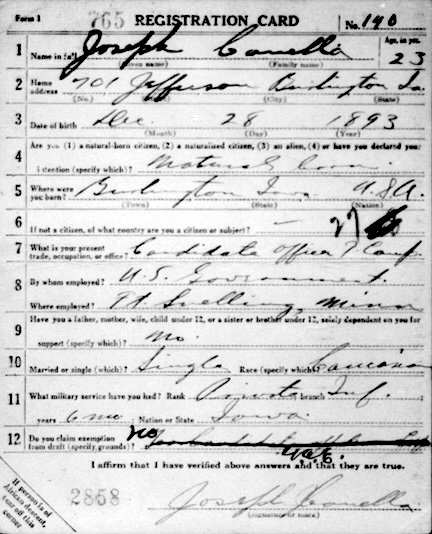 Form 1 765 REGISTRATION CARD No. 140
1 Name in full Joseph Canella Age, in yrs. 23
(Given name) (Family name)
2 Home address 701 Jefferson Burlington Ia.
(No.) (City) (State)
3 Date of birth Dec. 28 1893
(Month) (Day) (Year)
Are you (1) a natural-born citizen, (2) a naturalized citizen, (3) an alien, (4) or have you declared your
4 intention (specify which)? Natural born
5 Where were you born? Burlington Iowa U.S.A.
(Town) (State) (Nation)
6 If not a citizen, of what country are you a citizen or subject? — 27
7 What is your present trade, occupation, or office? Candidate Officer T Camp
8 By whom employed? U.S. Government.
Where employed? Ft Snelling, Minn
9 Have you a father, mother, wife, child under 12, or a sister or brother under 12, solely dependent on you for
support (specify which)? No.
10 Married or single (which)? Single Race (specify which)? Caucasian
11 What military service have you had? Rank Private branch Inf.
years 6 mo; Nation or State Iowa
12 Do you claim exemption from draft (specify grounds)? No
I affirm that I have verified above answers and that they are true.
2858 Joseph Canella
(Signature or mark)
If person is of African descent, tear off this corner